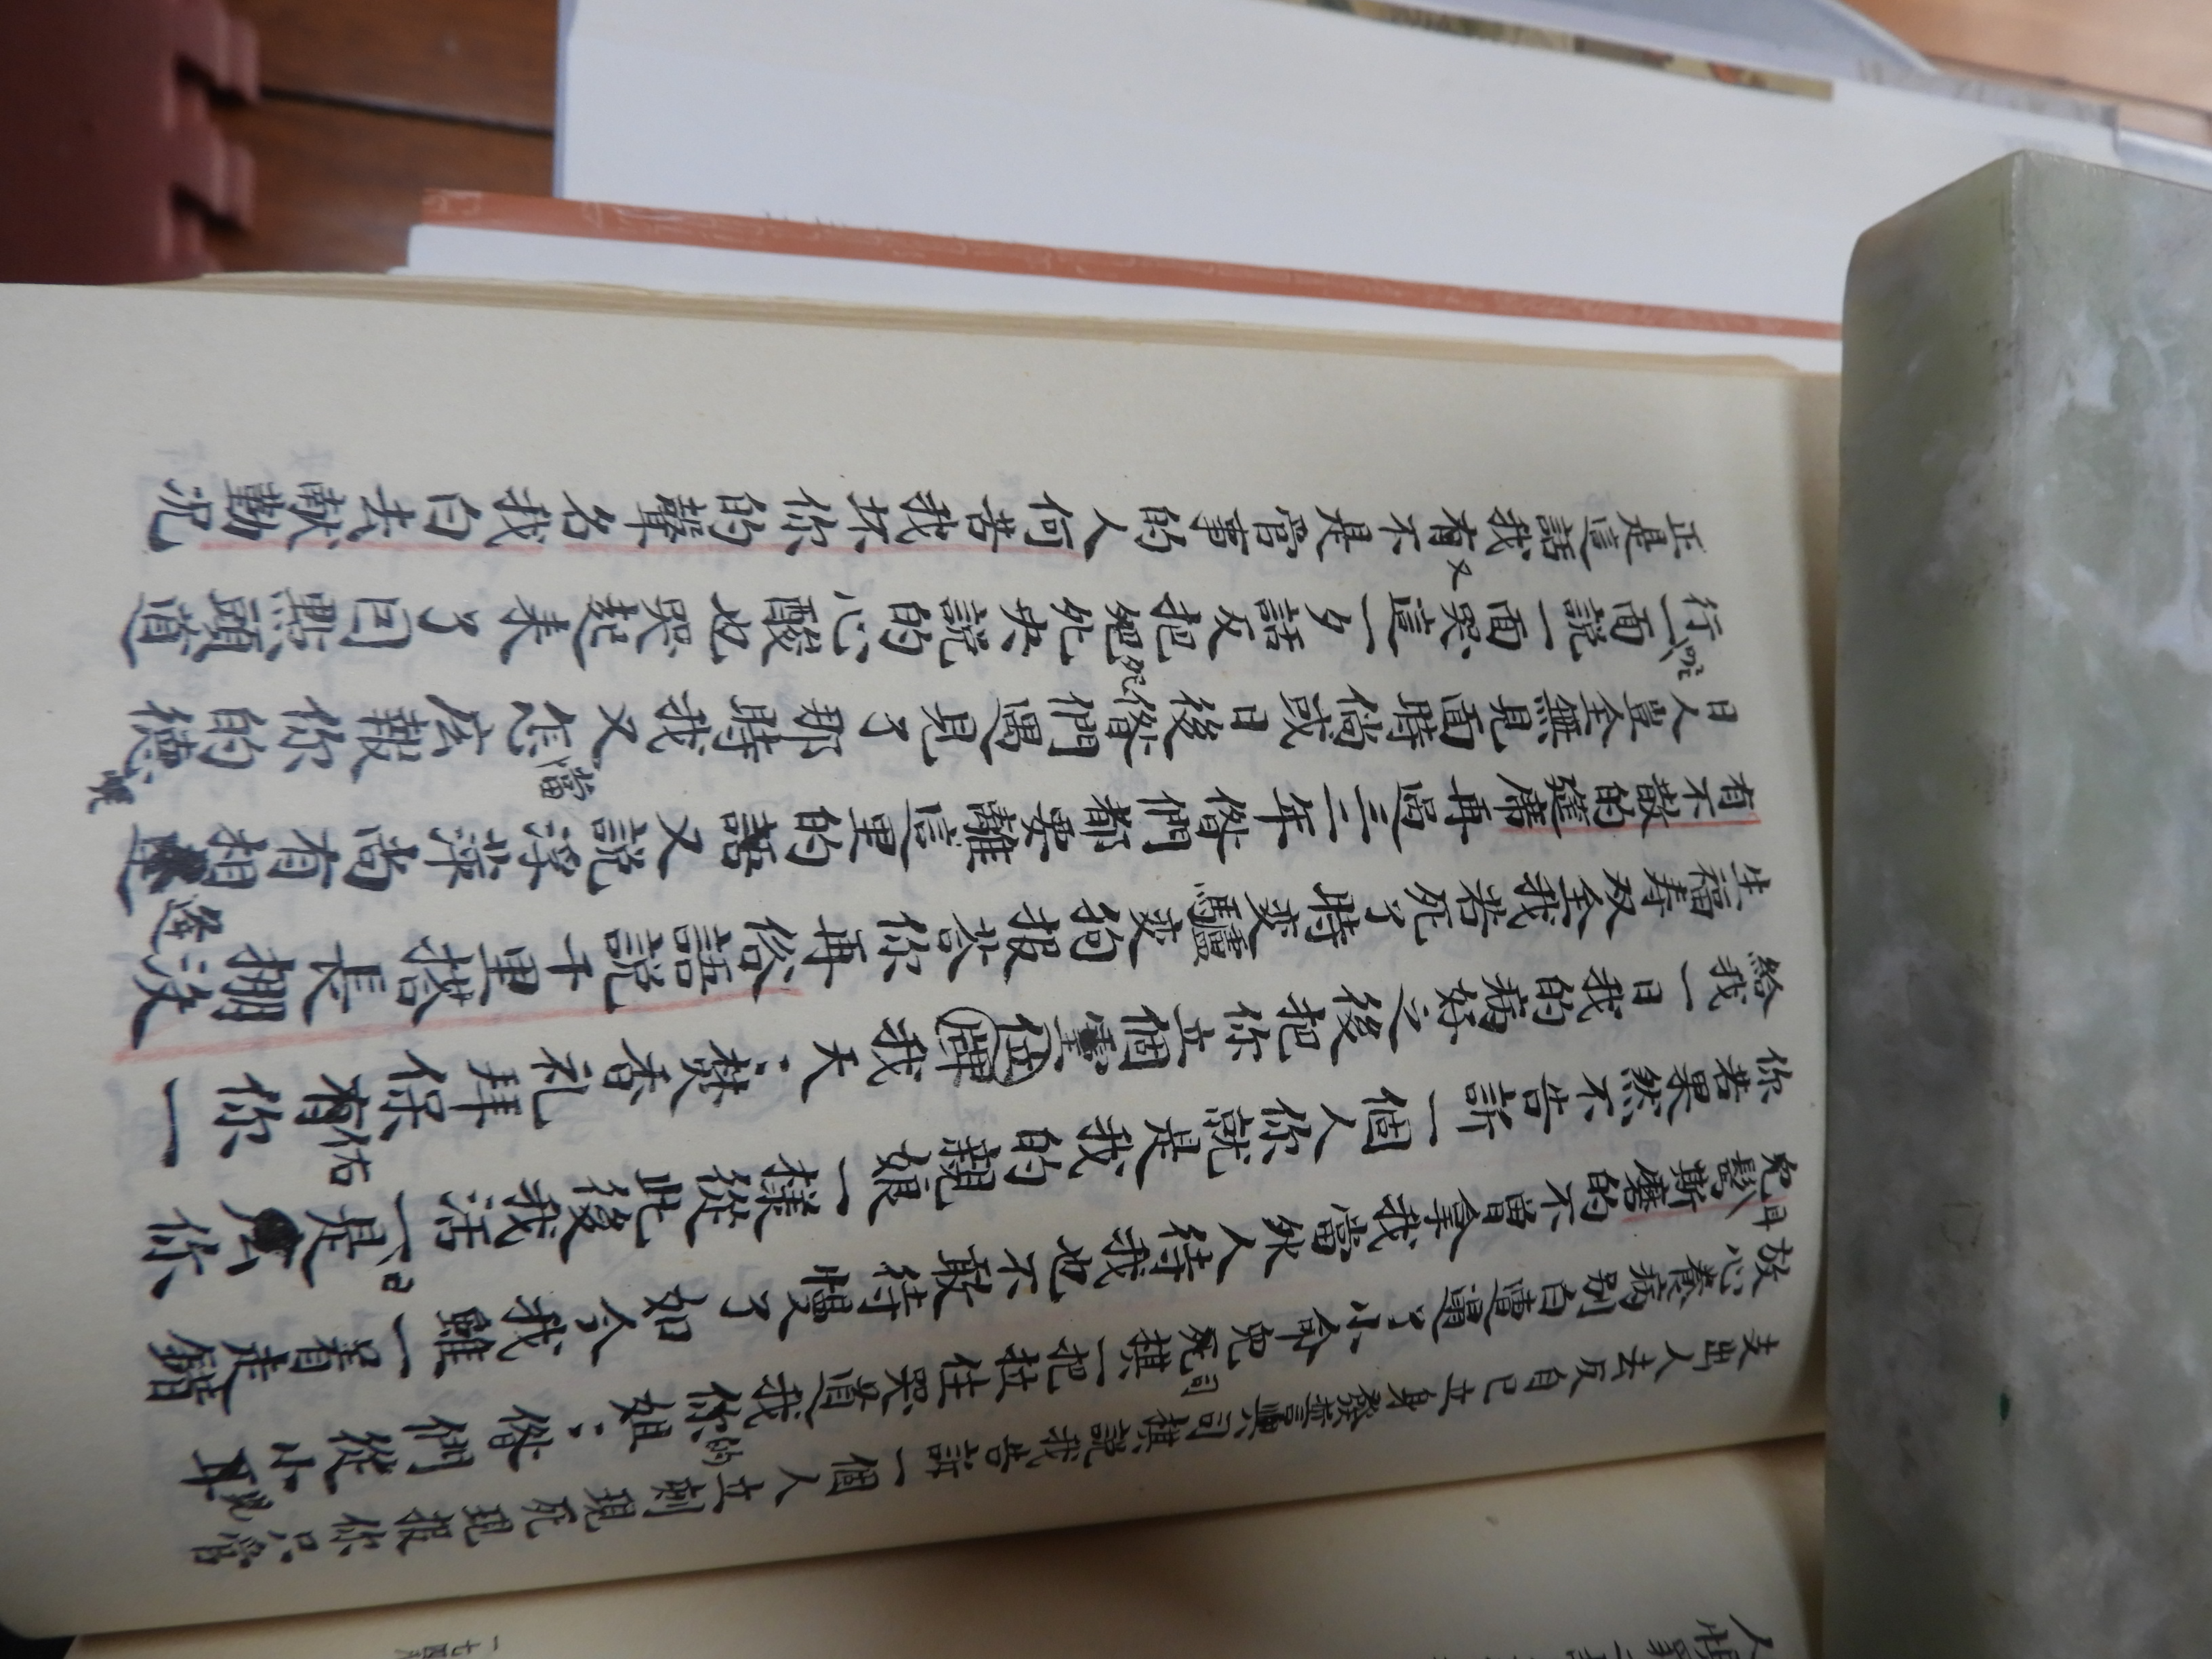 支出人去反自己立身發誓與司棋說我告訴一個人立刻現死現報你只管
放心養病別白遭遢了小命兒死棋一把拉住哭道我你姐〻咱們從小耳
兒耳鬢斯磨的不曾拿我當外人待我也不敢待慢了如今我雖一着走錯
你若果然不告訴一個人你就是我的親娘一樣從此後我活一日是你
給我一日我的病好之後把你立個位牌我天〻焚香礼拜保佑你一
生福寿双全我若死了時变驢变狗报答你再俗語說千里搭長棚没
有不散的筵席再過三二年咱們都要離這里的語又說浮萍尚有相逢
日人豈全無見面時倘或日後咱們遇見了那時我又怎庅報你的德
行一面說一面哭這一夕話反把央說的心酸也哭起來了因點頭道
正是這話我有不是管事的人何苦我坏你的聲名我白去献勤况